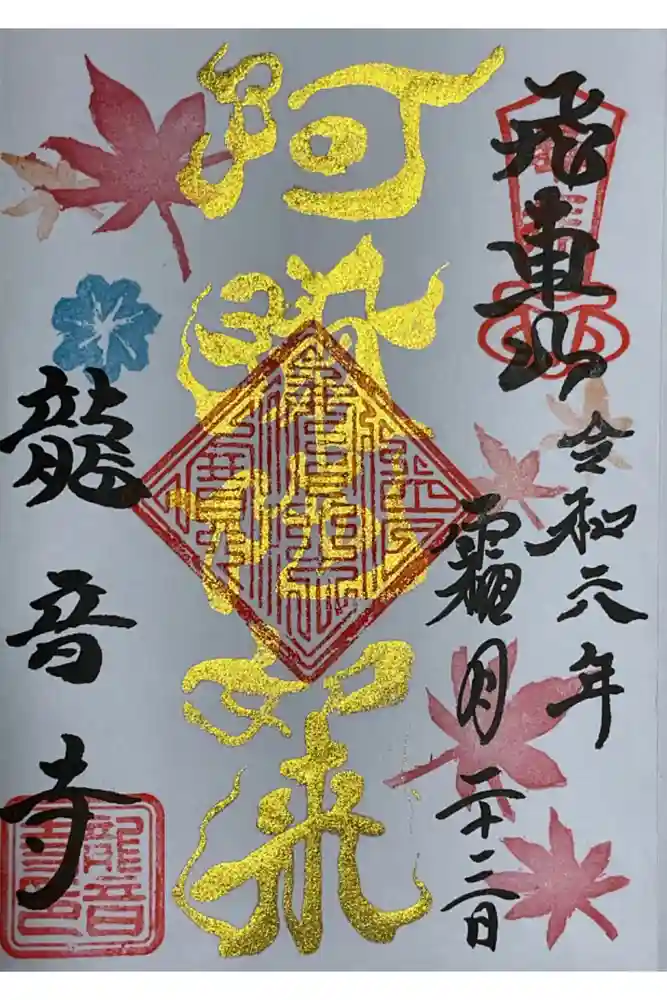 飛車山
令和元年
霜月二十二日
阿彌陀如来
龍音寺